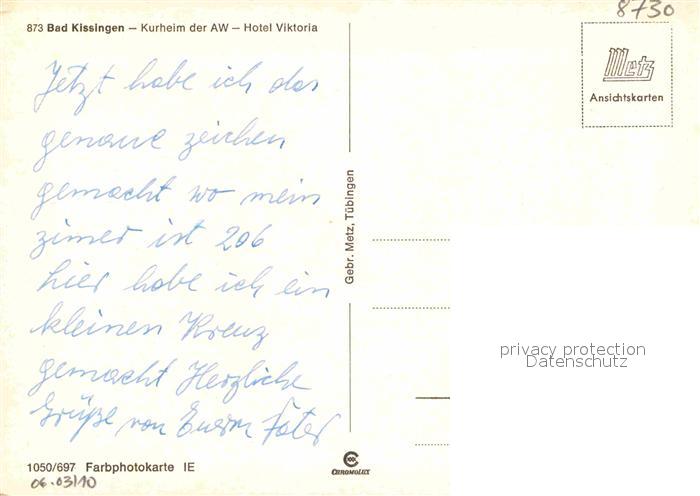 8730
873 Bad Kissingen – Kurheim der AW – Hotel Viktoria
Metz
Ansichtskarten
Jetzt habe ich das
genaue zeichen
gemacht wo mein
zimer ist 206
hier habe ich ein
kleinen Kreuz
gemacht Herzliche
Grüße von Euerm Fater
Gebr. Metz, Tübingen
privacy protection
Datenschutz
1050/697 Farbphotokarte IE
CHROMOLUX
06.03/10